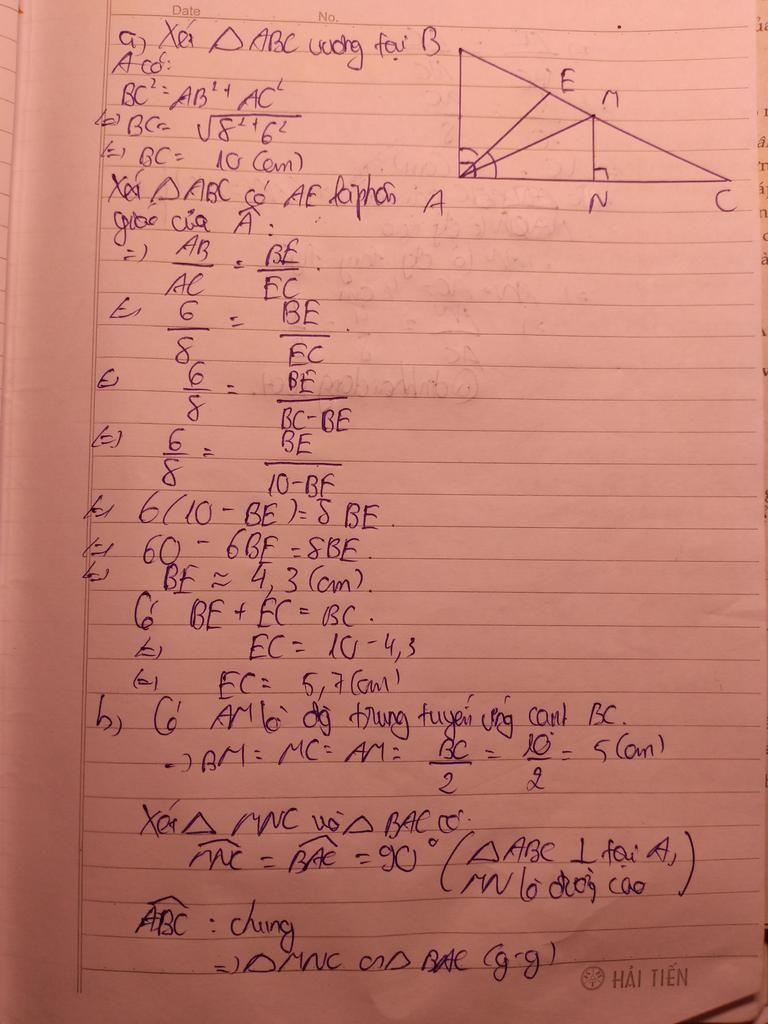 Date No.
a, Xét △ ABC vuông tại B
A có:
BC² = AB² + AC²
(=) BC = √8²+6²
(=) BC = 10 (cm)
E
M
A
N
C
Xét △ABC có AE là phân
giác của Â :
=) AB/AC = BE/EC.
(=) 6/8 = BE/EC.
(=) 6/8 = BE/BC-BE
(=) 6/8 = BE/10-BE
(=) 6(10 - BE) = 8 BE.
(=) 60 - 6BE = 8BE.
(=) BE ≈ 4,3 (cm).
Có BE + EC = BC.
(=) EC = 10 - 4,3
(=) EC = 5,7 (cm)
b, Có AM là đg trung tuyến ứng cạnh BC.
=) BM = MC = AM = BC/2 = 10/2 = 5 (cm)
Xét △ MNC và △ BAC có.
MNC = BAC = 90° (△ABC ⊥ tại A,
MN là đường cao)
ABC : chung
=) △MNC ∽ △ BAC (g-g)
HẢI TIẾN